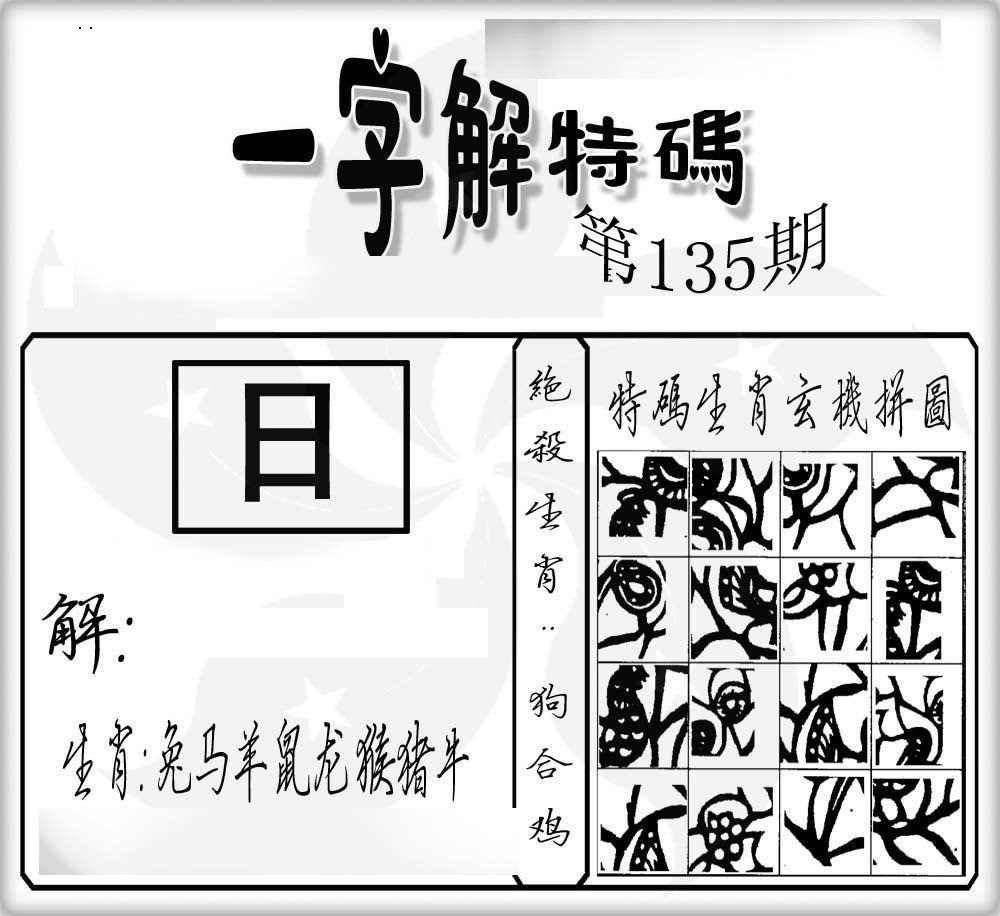 一字解特碼
第135期
日
解：
生肖：兔马羊鼠龙猴猪牛
絶殺生肖：狗合鸡
特碼生肖玄機拼圖